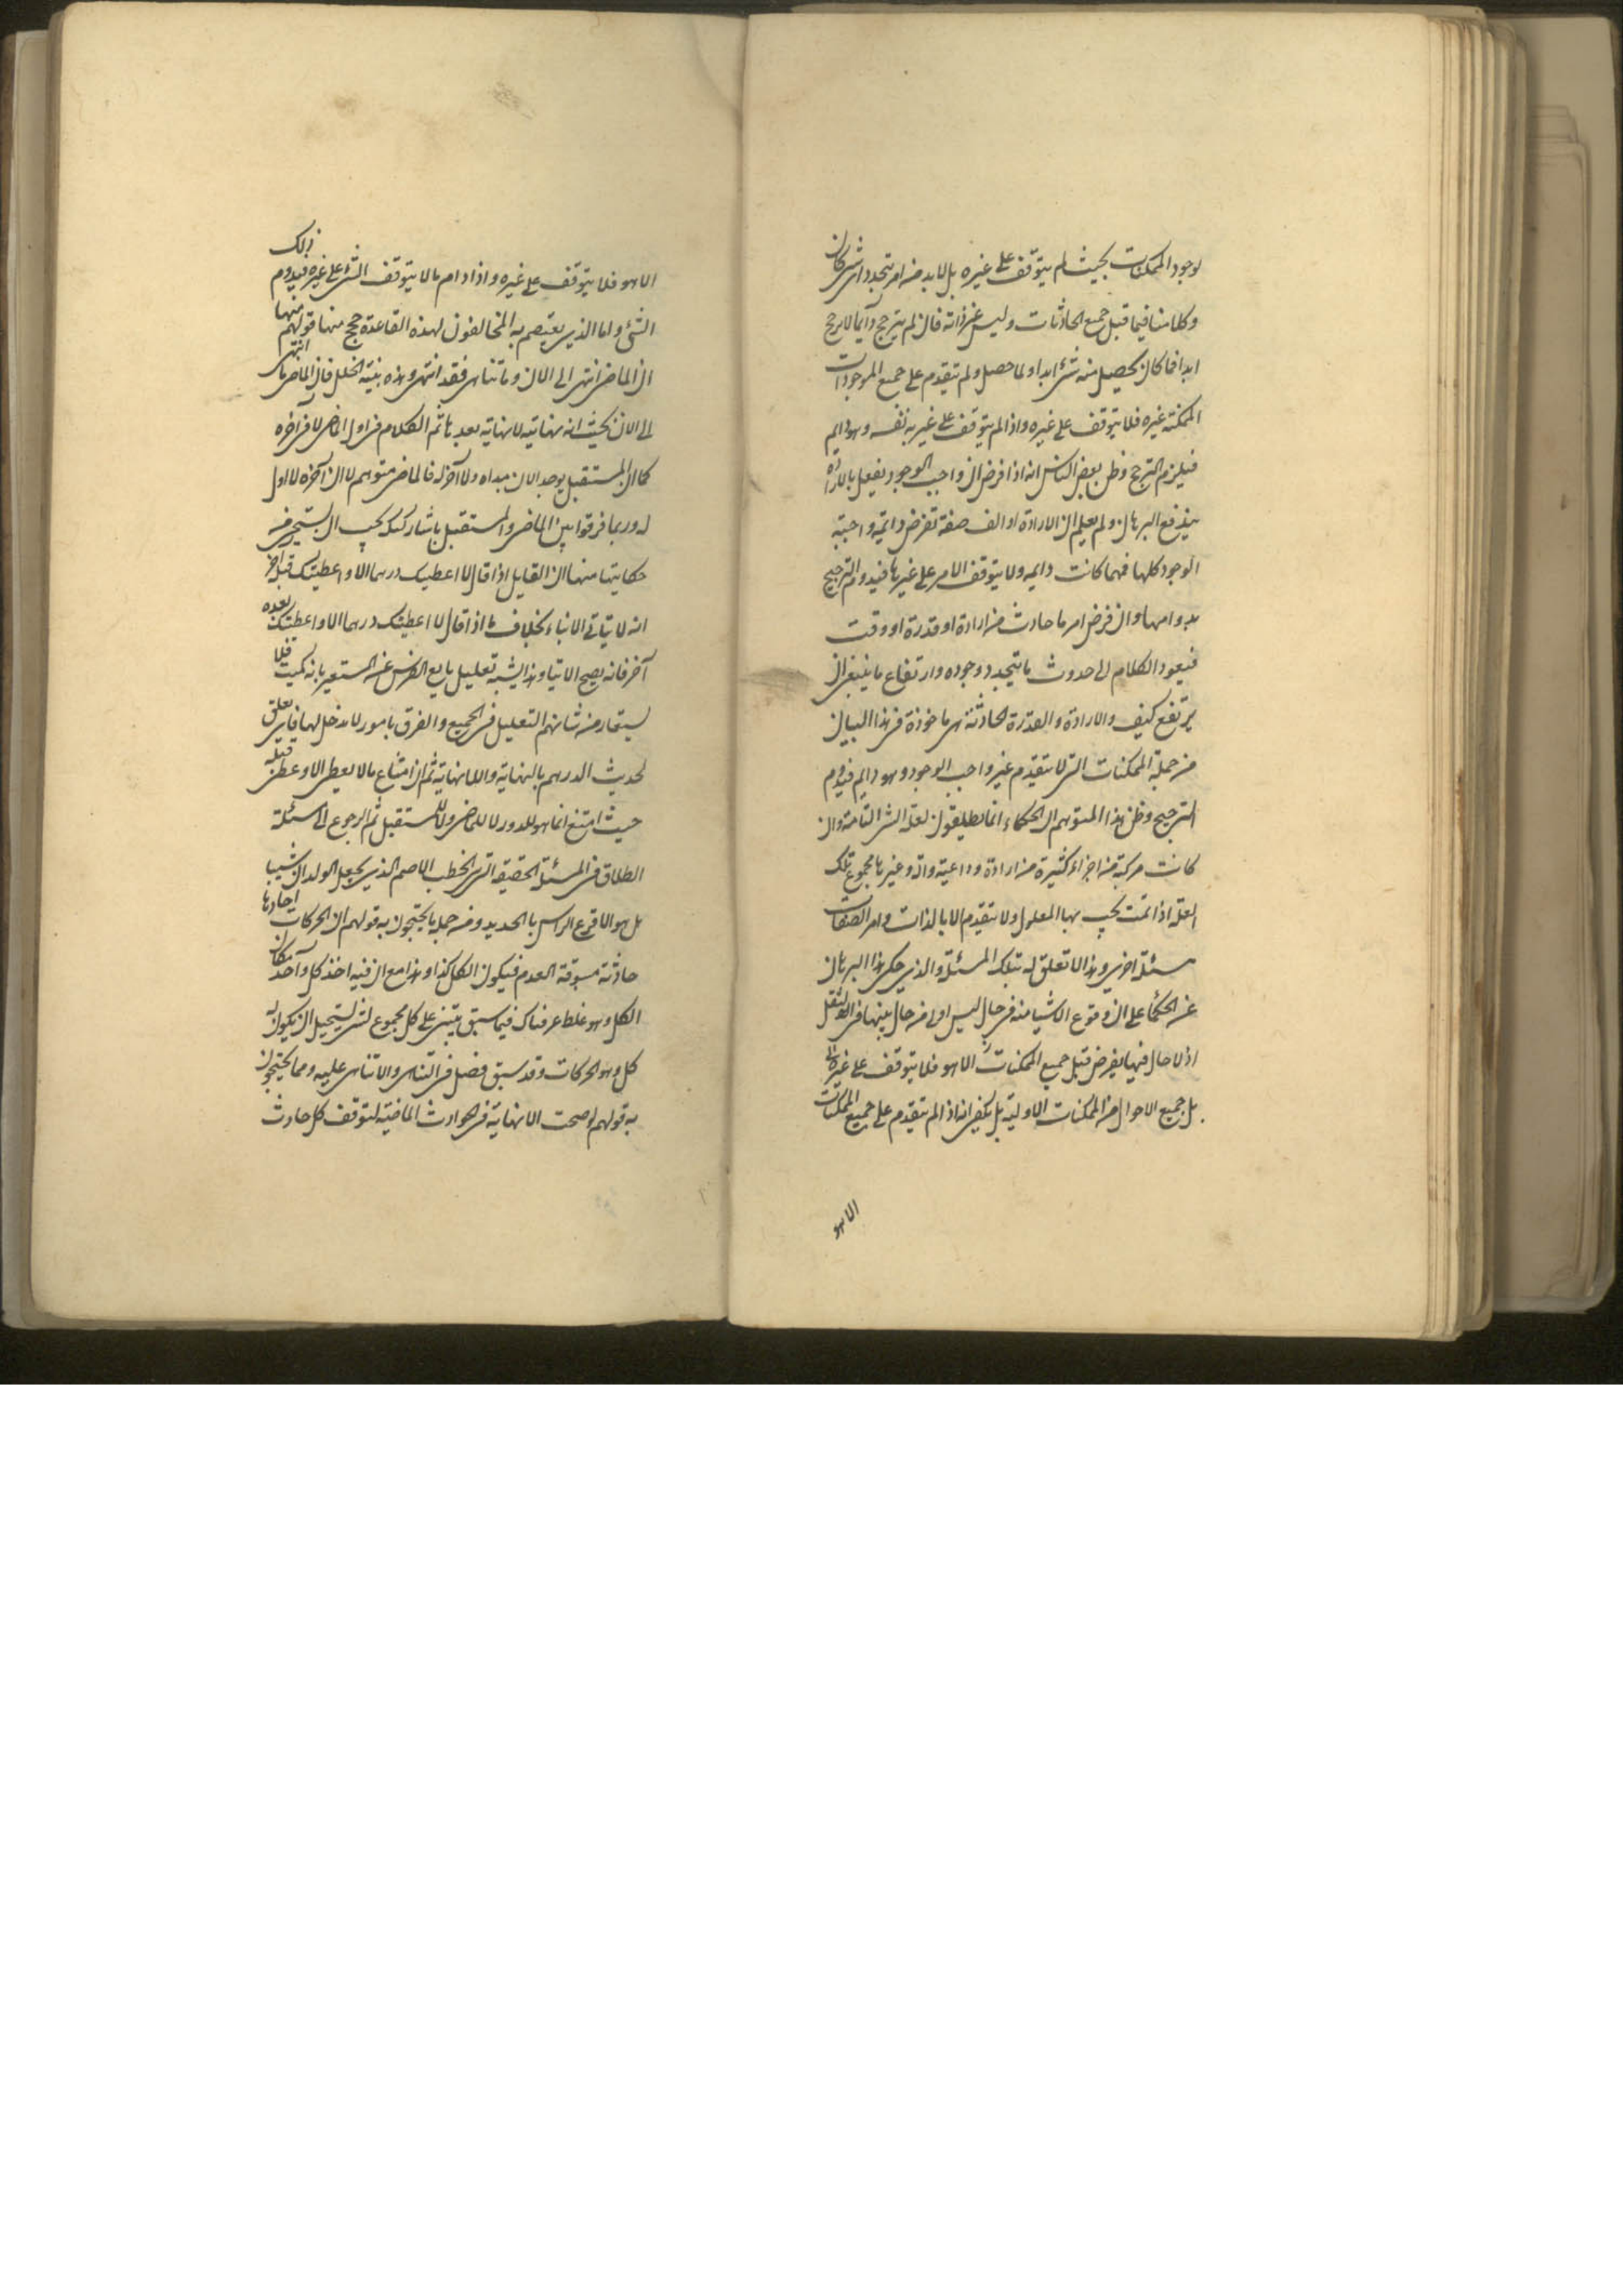 لوجود الممكنات بحيث لم يتوقف على غيره بل لابد من امر يتجدد اى شئ كان
وكلامنا فيما قبل جميع الحادثات وليس غير ذاته فان لم يترجح دايما لا يرجح
ابدا فما كان يحصل منه شئ ابدا ولما حصل ولم يتقدم على جميع الموجودات
الممكنة غيره فلا يتوقف على غيره واذا لم يتوقف على غير به نفسه وهو دايم
فيلزم الترجح وظن بعض الناس انه اذا فرض ان واجب الوجود يفعل بالارادة
يندفع البرهان ولم يعلم ان الارادة او الف صفة تفرض دايمة واجبة
الوجود كلها فهما كانت دايمه ولا يتوقف الامر على غيرها فيدوم الترجيح
بدوامها وان فرض امر ما حادث من ارادة او قدرة او وقت
فيعود الكلام الى حدوث ما يتجدد وجوده وارتفاع ما ينبغى ان
يرتفع كيف والارادة والقدرة الحادثة هى ماخوذة فى هذا البيان
من جملة الممكنات التى لا يتقدم غير واجب الوجود وهو دايم فيدوم
الترجيح وظن هذا المتوهم ان الحكماء انما يطلقون لعلة الشئ التامة وان
كانت مركبة من اجزاء كثيرة من ارادة وداعية والة وغيرها مجموع تلك
العلة اذا تمت يجب بها المعلول ولا يتقدم الا بالذات وامر الصفات
مسئلة اخرى وهذا لا تعلق له بتلك المسئلة والذى حكى هذا البرهان
عن الحكما على ان وقوع الاشيا منه فى حال ليس اولى من حال بينها فى
اذ لا حال فيها يفرض قبل جميع الممكنات الا هو فلا يتوقف على غيره
بل جميع الاحوال من الممكنات الاولية بل يكفى انه اذا لم يتقدم على جميع الممكنات
الا هو
الا هو فلا يتوقف على غيره واذا دام ما لا يتوقف الشئ على غيره فيدوم ذلك
الشئ واما الذى يعتصم به المخالفون لهذه القاعدة حجج منها قولهم
ان الماضى انتهى الى الان وما تناهى فقد انتهى وهذه بينة الخلل فان الماضى ما انتهى
الى الان بحيث انه نهايته لا نهاية بعدها ثم الكلام فى اول الماضى لا فى آخره
كما ان المستقبل يوجد الان مبداه ولا آخر له فالماضى متوهم لا ان آخره لا اول
له وربما فرقوا بين الماضى والمستقبل باشيا ركيكة يجب ان يستحيى من
حكايتها منها ان القايل اذا قال لا اعطيك درهما الا واعطيتك قبل آخر
انه لا يتاتى الانباء بخلاف ما اذا قال لا اعطيتك درهما الا واعطيتك بعده
آخر فانه يصح الاتيا وهذا يشبه تعليل بايع الفرس عن المستعير بانه كميت فلا
يستعار من شانهم التعليل فى الجميع والفرق بامور لا مدخل لها فاى تعلق
لحديث الدرهم بالنهاية واللانهاية ثم ان امتناع ما لا يعطى الا وعطى قبله
حيث امتنع انما هو للدور لا للماضى ولا للمستقبل ثم الرجوع الى اسئلة
الطلاق فى المسئلة الحقيقة التى الخطب الاصم الذى يجعل الولدان شيبا
بل هو الاقرع الراس بالحديد ومن جملة ما يحتجون به قولهم ان الحركات احادها
حادثة مسبوقة العدم فيكون الكل كذا وهذا مع ان فيه اخذ كل واحد مكان
الكل وهو غلط عرفناك فيما سبق يبتنى على كل مجموع لشئ يستحيل ان يكون له
كل وهو الحركات وقد سبق فصل فى التناهى واللاتناهى عليه ومما يحتجون
به قولهم لو صحت اللانهاية فى الحوادث الماضية لتوقف كل حادث